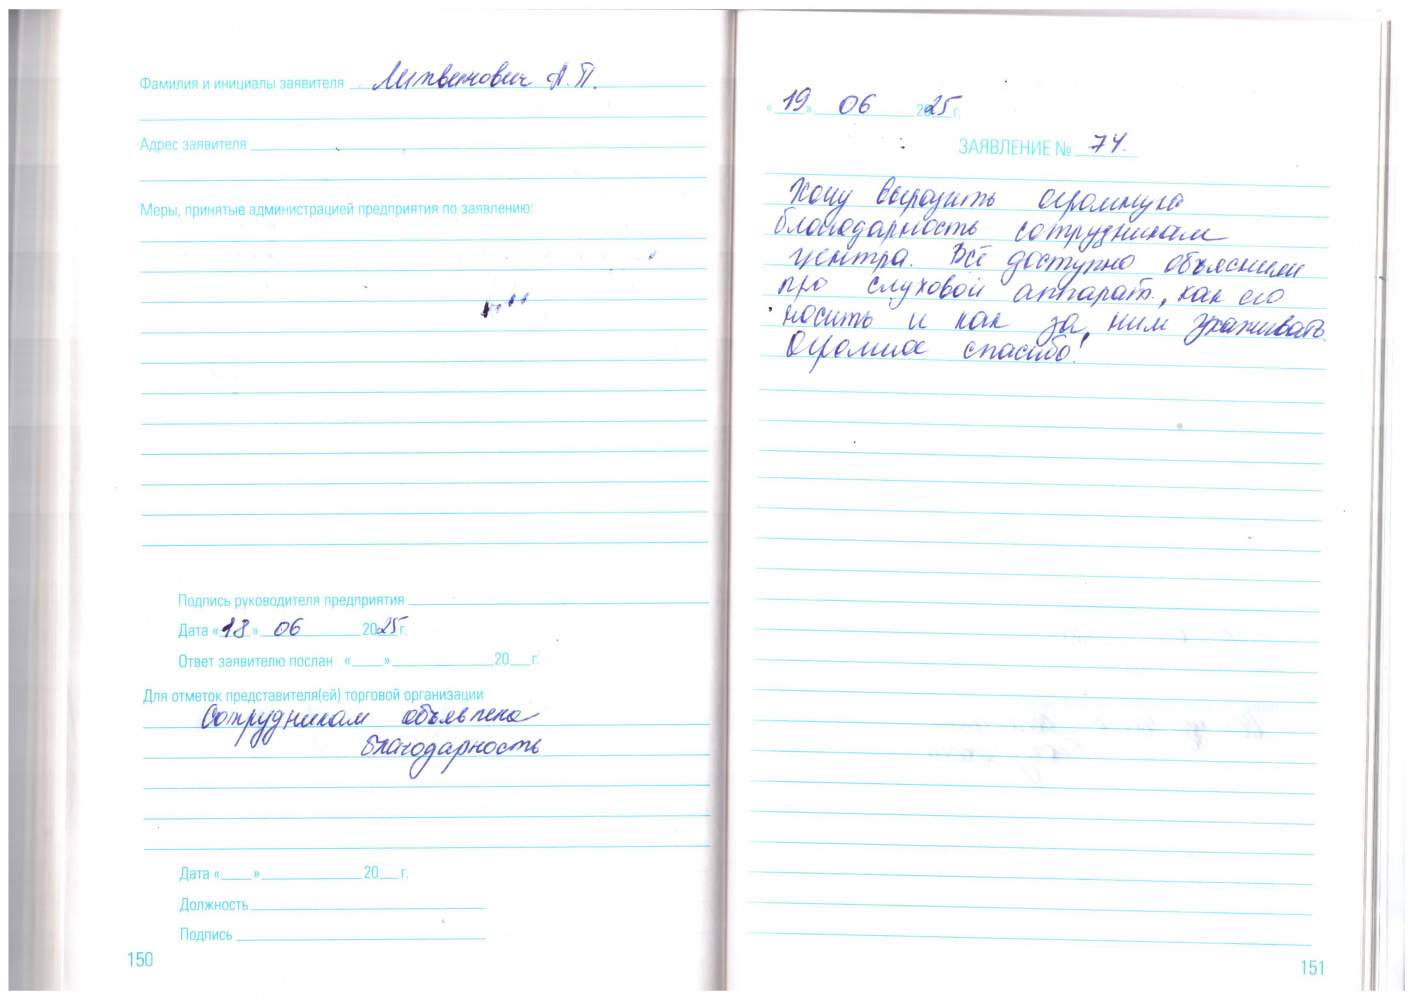 Фамилия и инициалы заявителя Литвенович А.П.
Адрес заявителя
Меры, принятые администрацией предприятия по заявлению:
Подпись руководителя предприятия
Дата «18» 06 2025 г.
Ответ заявителю послан «___» ___ 20__ г.
Для отметок представителя(ей) торговой организации
Сотрудникам объявлена
благодарность
Дата «___» ___ 20__ г.
Должность
Подпись
150
«19» 06 2025 г.
ЗАЯВЛЕНИЕ № 74.
Хочу выразить огромную
благодарность сотрудникам
центра. Всё доступно объяснили
про слуховой аппарат, как его
носить и как за ним ухаживать.
Огромное спасибо!
151